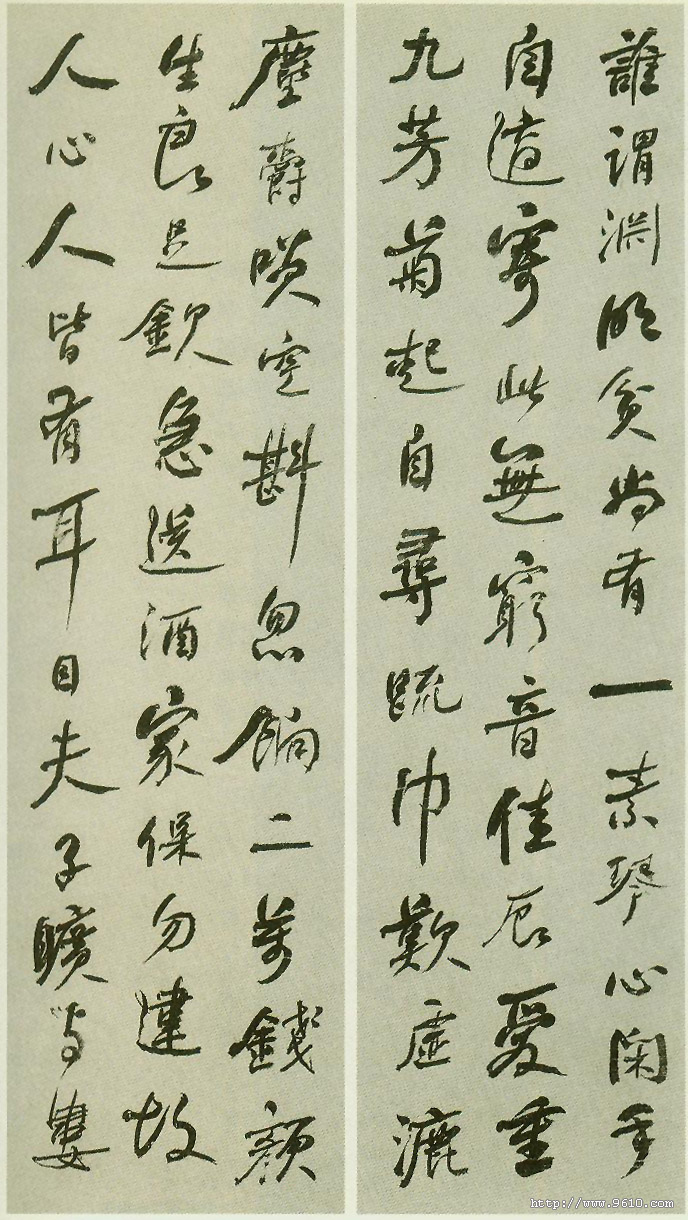 誰謂淵明貧尚有一素琴心閑手
自適寄此無窮音佳辰愛重
九芳菊起自尋疏巾歎虛漉
塵爵咲空斟忽餉二萬錢顏
生良足欽急送酒家保勿違故
人心人皆有耳目夫子曠與婁
http://www.9610.com/